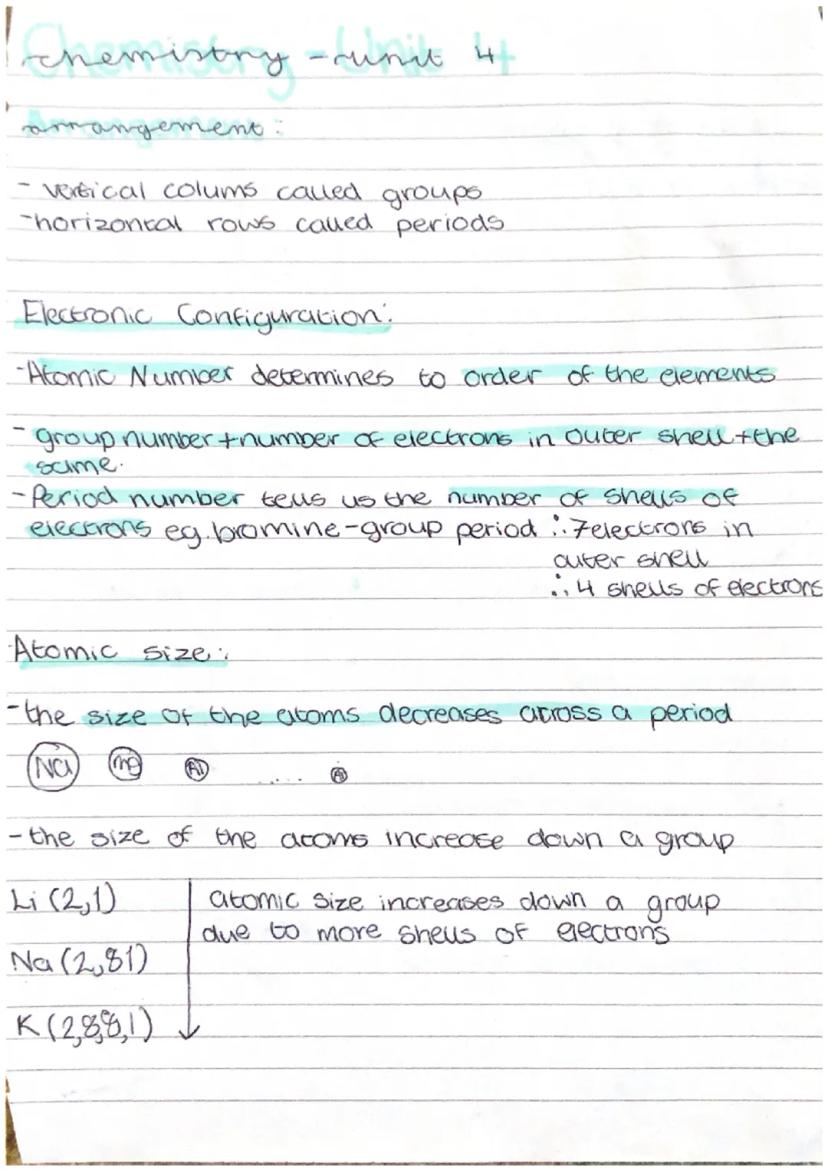 Chemistry - Unit 4
arrangement:
- vertical colums called groups
- horizontal rows called periods
Electronic Configuration:
- Atomic Number determines to order of the elements
- group number + number of electrons in outer shell + the
same.
- Period number tells us the number of shells of
electrons eg. bromine - group period ∴ 7 electrons in
outer shell
∴ 4 shells of electrons
Atomic size:
- the size of the atoms decreases across a period
Na Mg Al ....
- the size of the atoms increase down a group
Li (2,1) atomic size increases down a group
due to more shells of electrons
Na (2,81)
K (2,8,8,1)